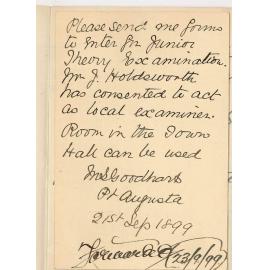 Please send me forms
to enter for Junior
Theory Examination.
Mr J. Holdsworth
has consented to act
as local examiner.
Room in the Town
Hall can be used
Pt Augusta
21st Sep 1899
23/9/99